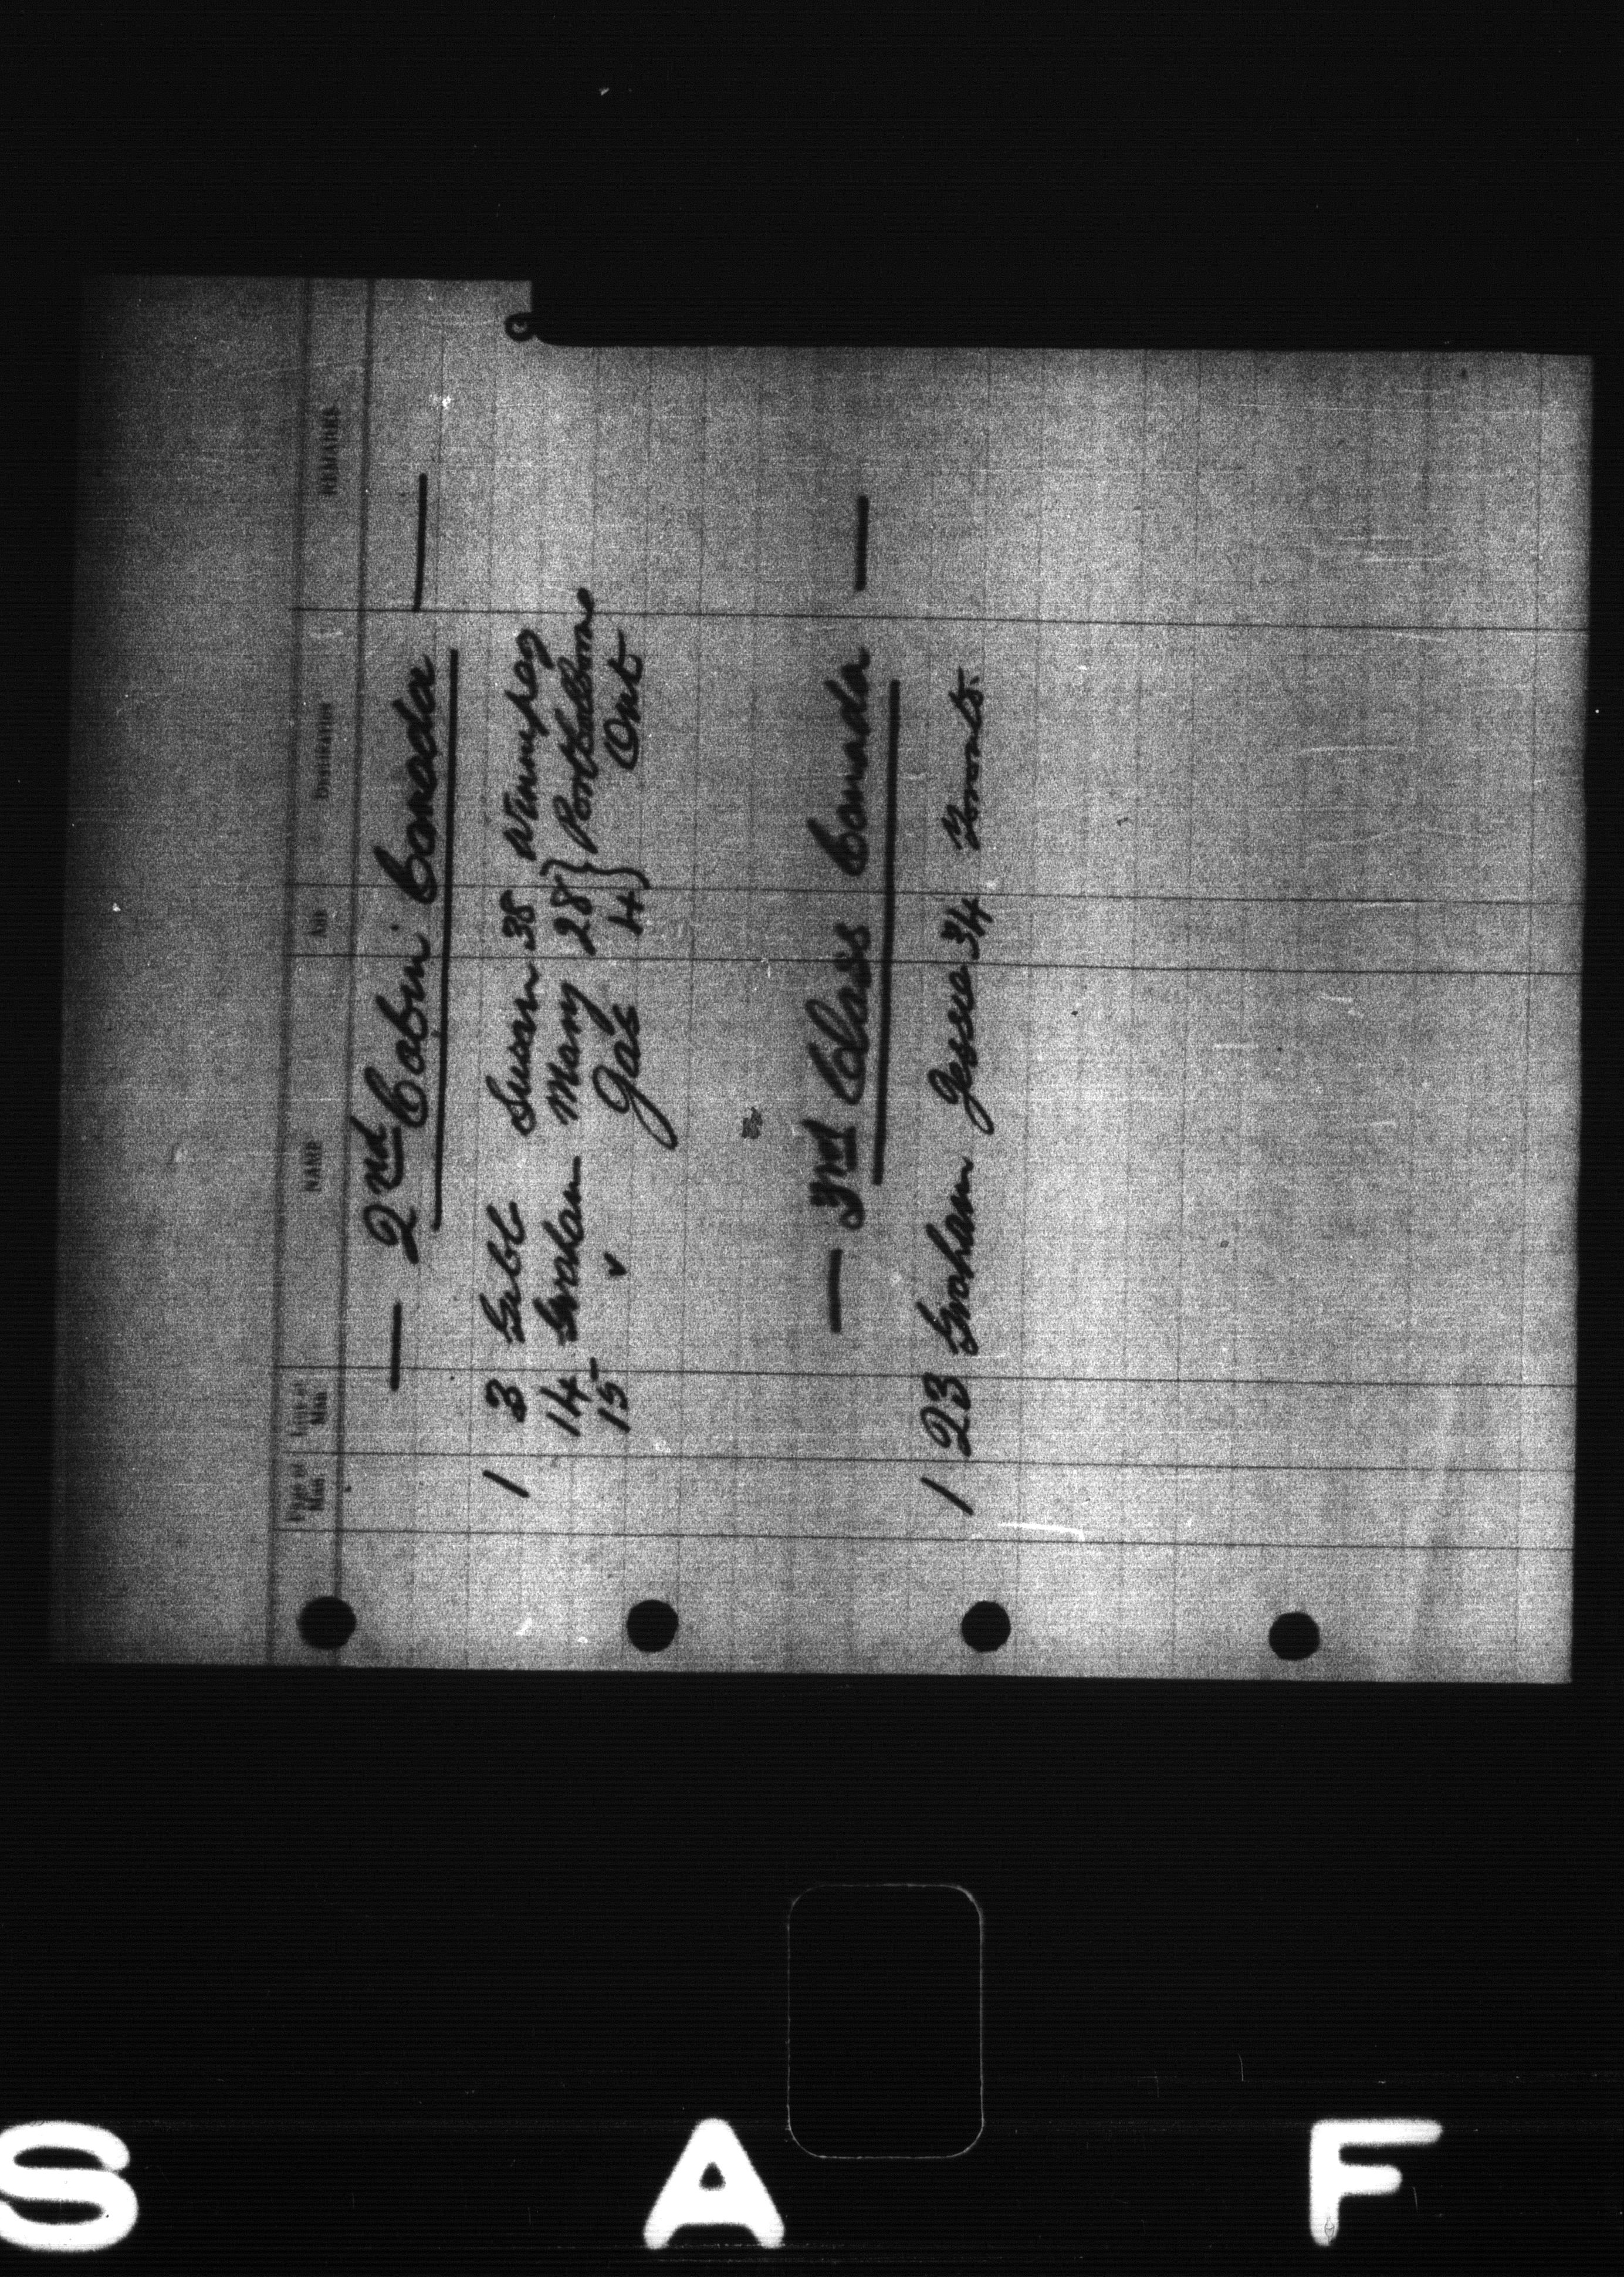 Page of Man Line of Man NAME AGE DESTINATION REMARKS
— 2nd Cabin Canada —
1 3 Gibb Susan 38 Winnipeg
14 Graham Mary 28 } Port Colborne
15 " Jas 4 } Ont
— 3rd Class Canada —
1 23 Graham Jesse 34 Toronto.
S A F